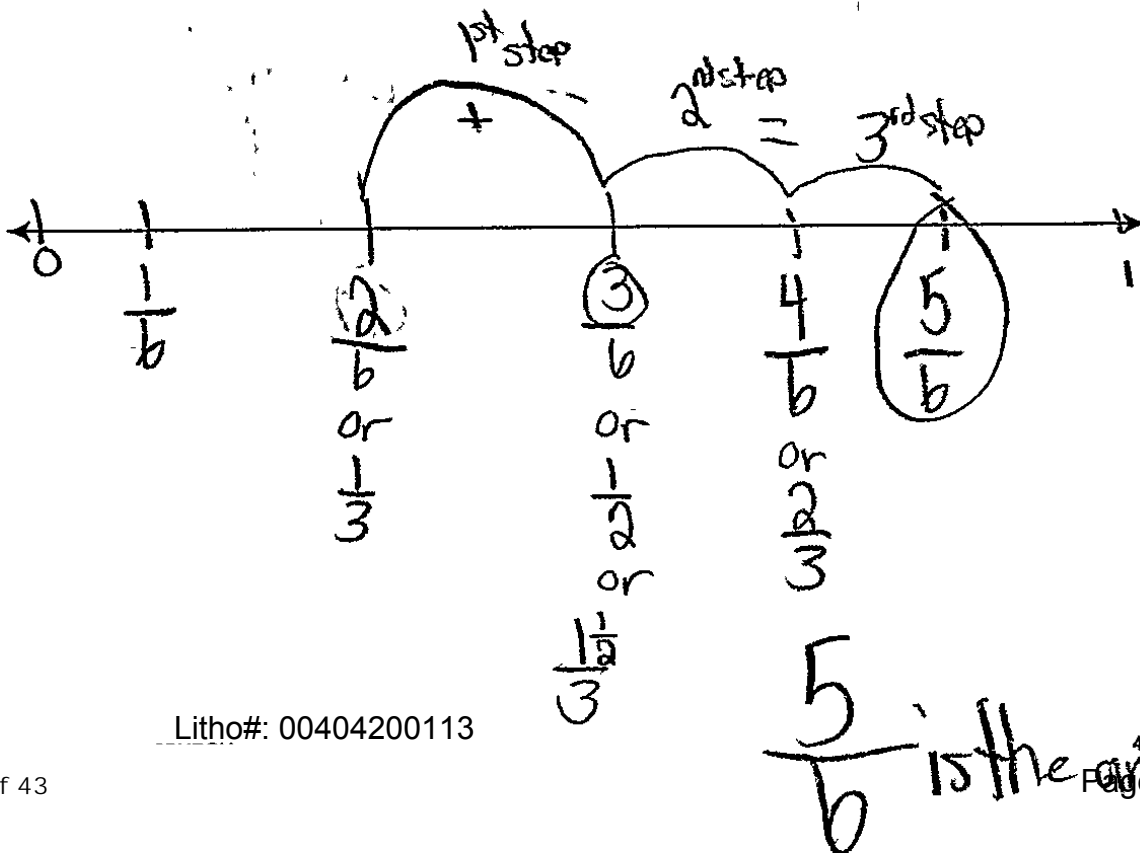 1st step
+
2nd step
=
3rd step
0
1/6
2/6
or
1/3
3/6
or
1/2
or
1 1/2/3
4/6
or
2/3
5/6
1
5/6 is the
Litho#: 00404200113
f 43